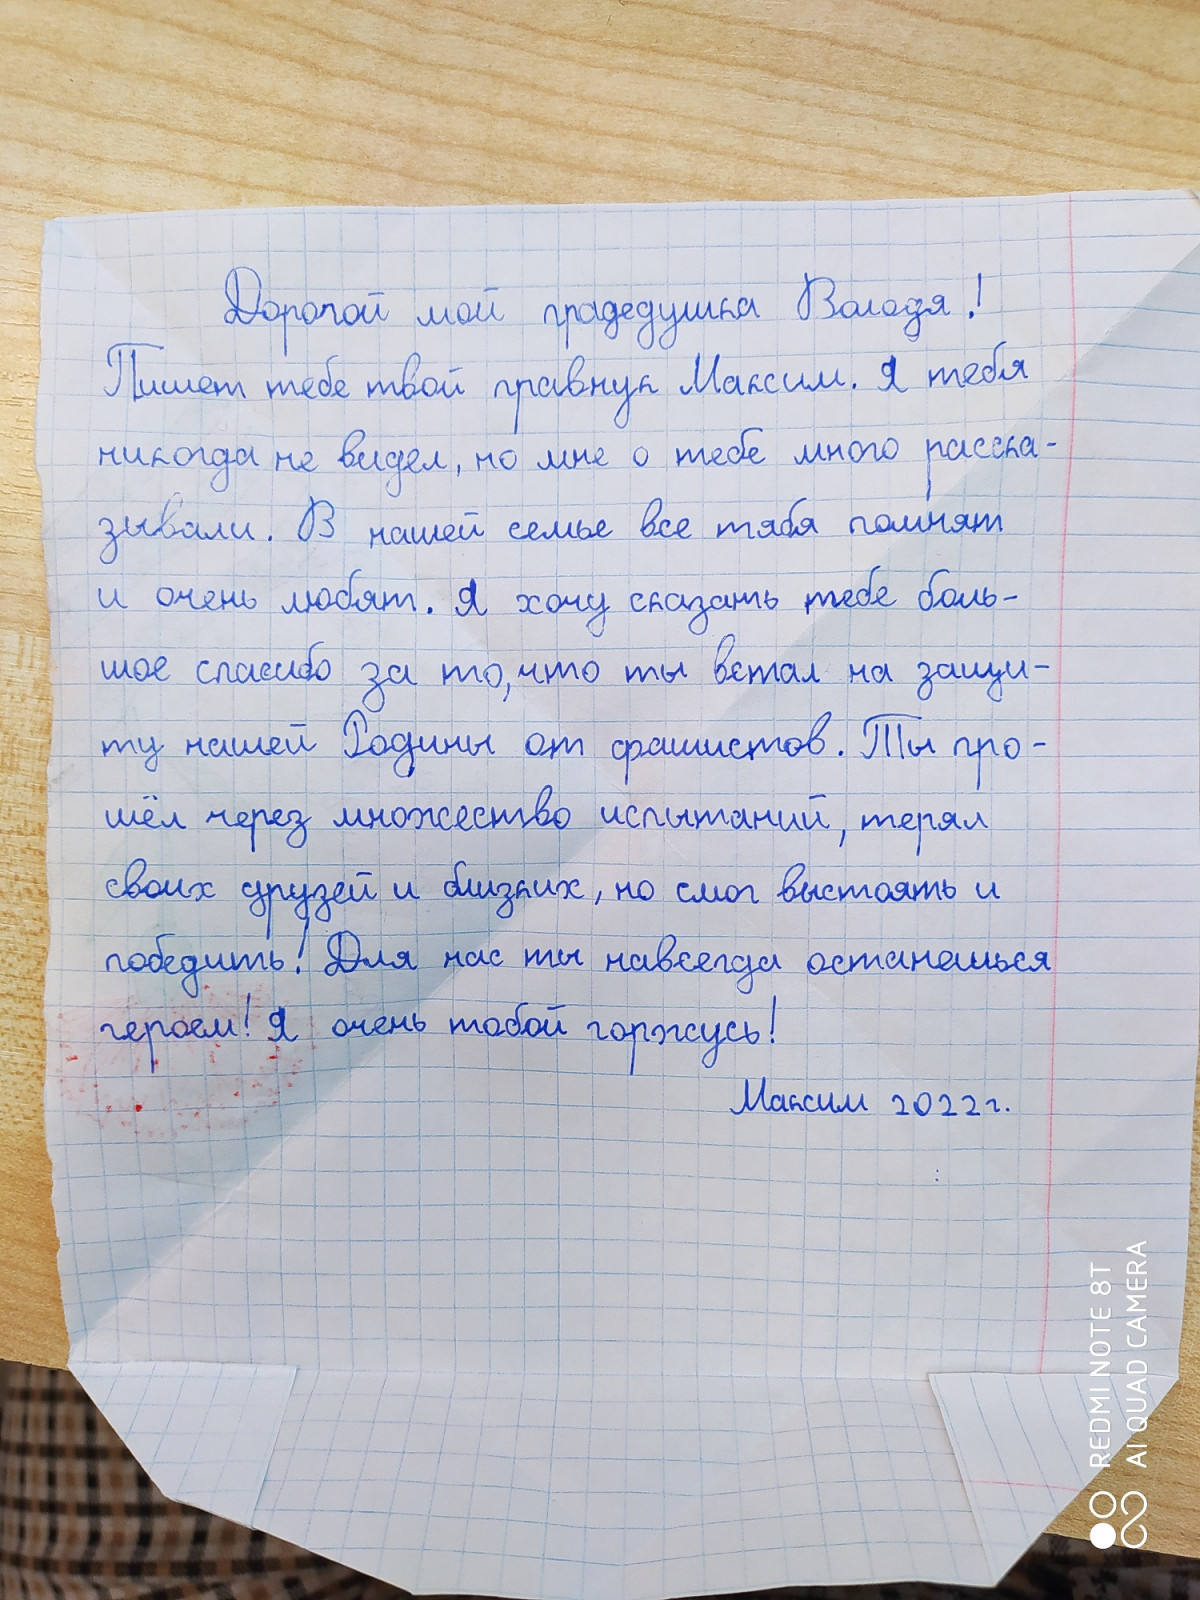 Дорогой мой прадедушка Володя!
Пишет тебе твой правнук Максим. Я тебя
никогда не видел, но мне о тебе много расска-
зывали. В нашей семье все тябя помнят
и очень любят. Я хочу сказать тебе боль-
шое спасибо за то, что ты встал на защи-
ту нашей Родины от фашистов. Ты про-
шёл через множество испытаний, терял
своих друзей и близких, но смог выстоять и
победить! Для нас ты навсегда останешься
героем! Я очень тобой горжусь!
Максим 2022г.
REDMI NOTE 8T
AI QUAD CAMERA